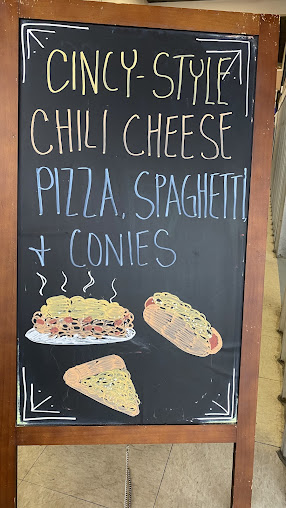 CINCY-STYLE
CHILI CHEESE
PIZZA, SPAGHETTI
+ CONIES